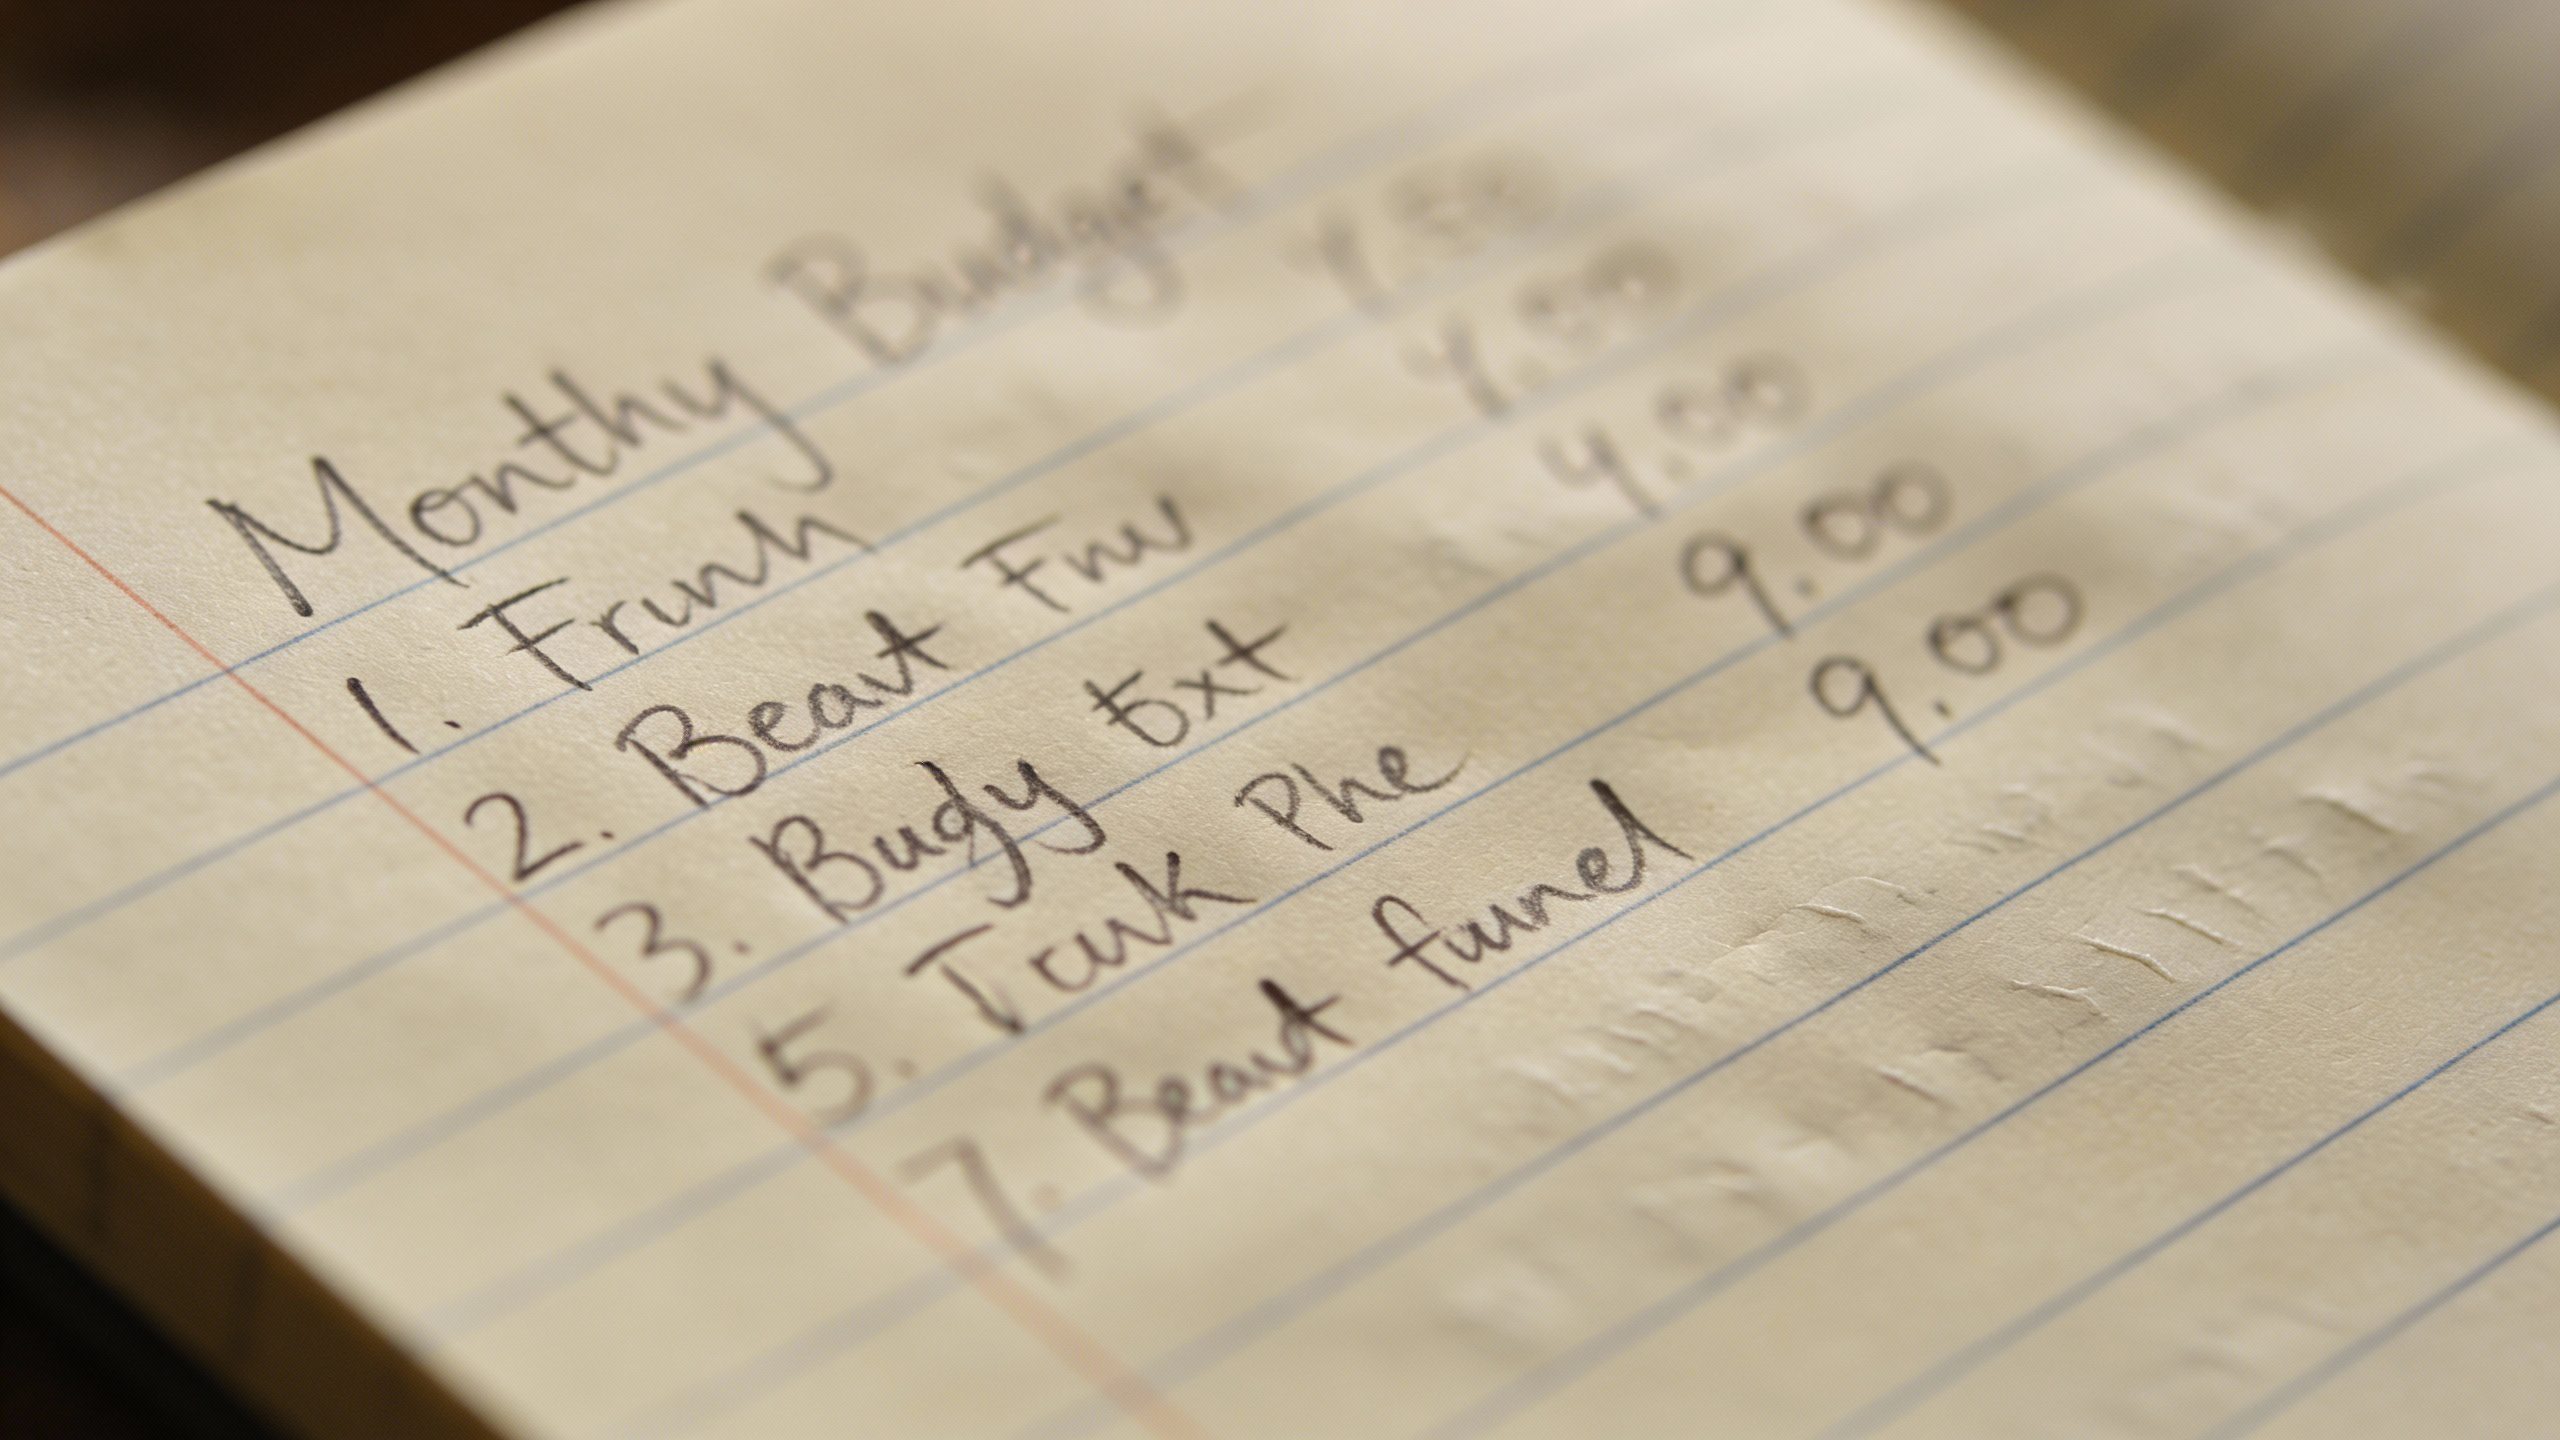 Monthy Budget
1. Frunh
2. Beaut Fnw 4.00
3. Budy Ext 4.00
5. Tauk Phe 9.00
7. Beaut funel 9.00